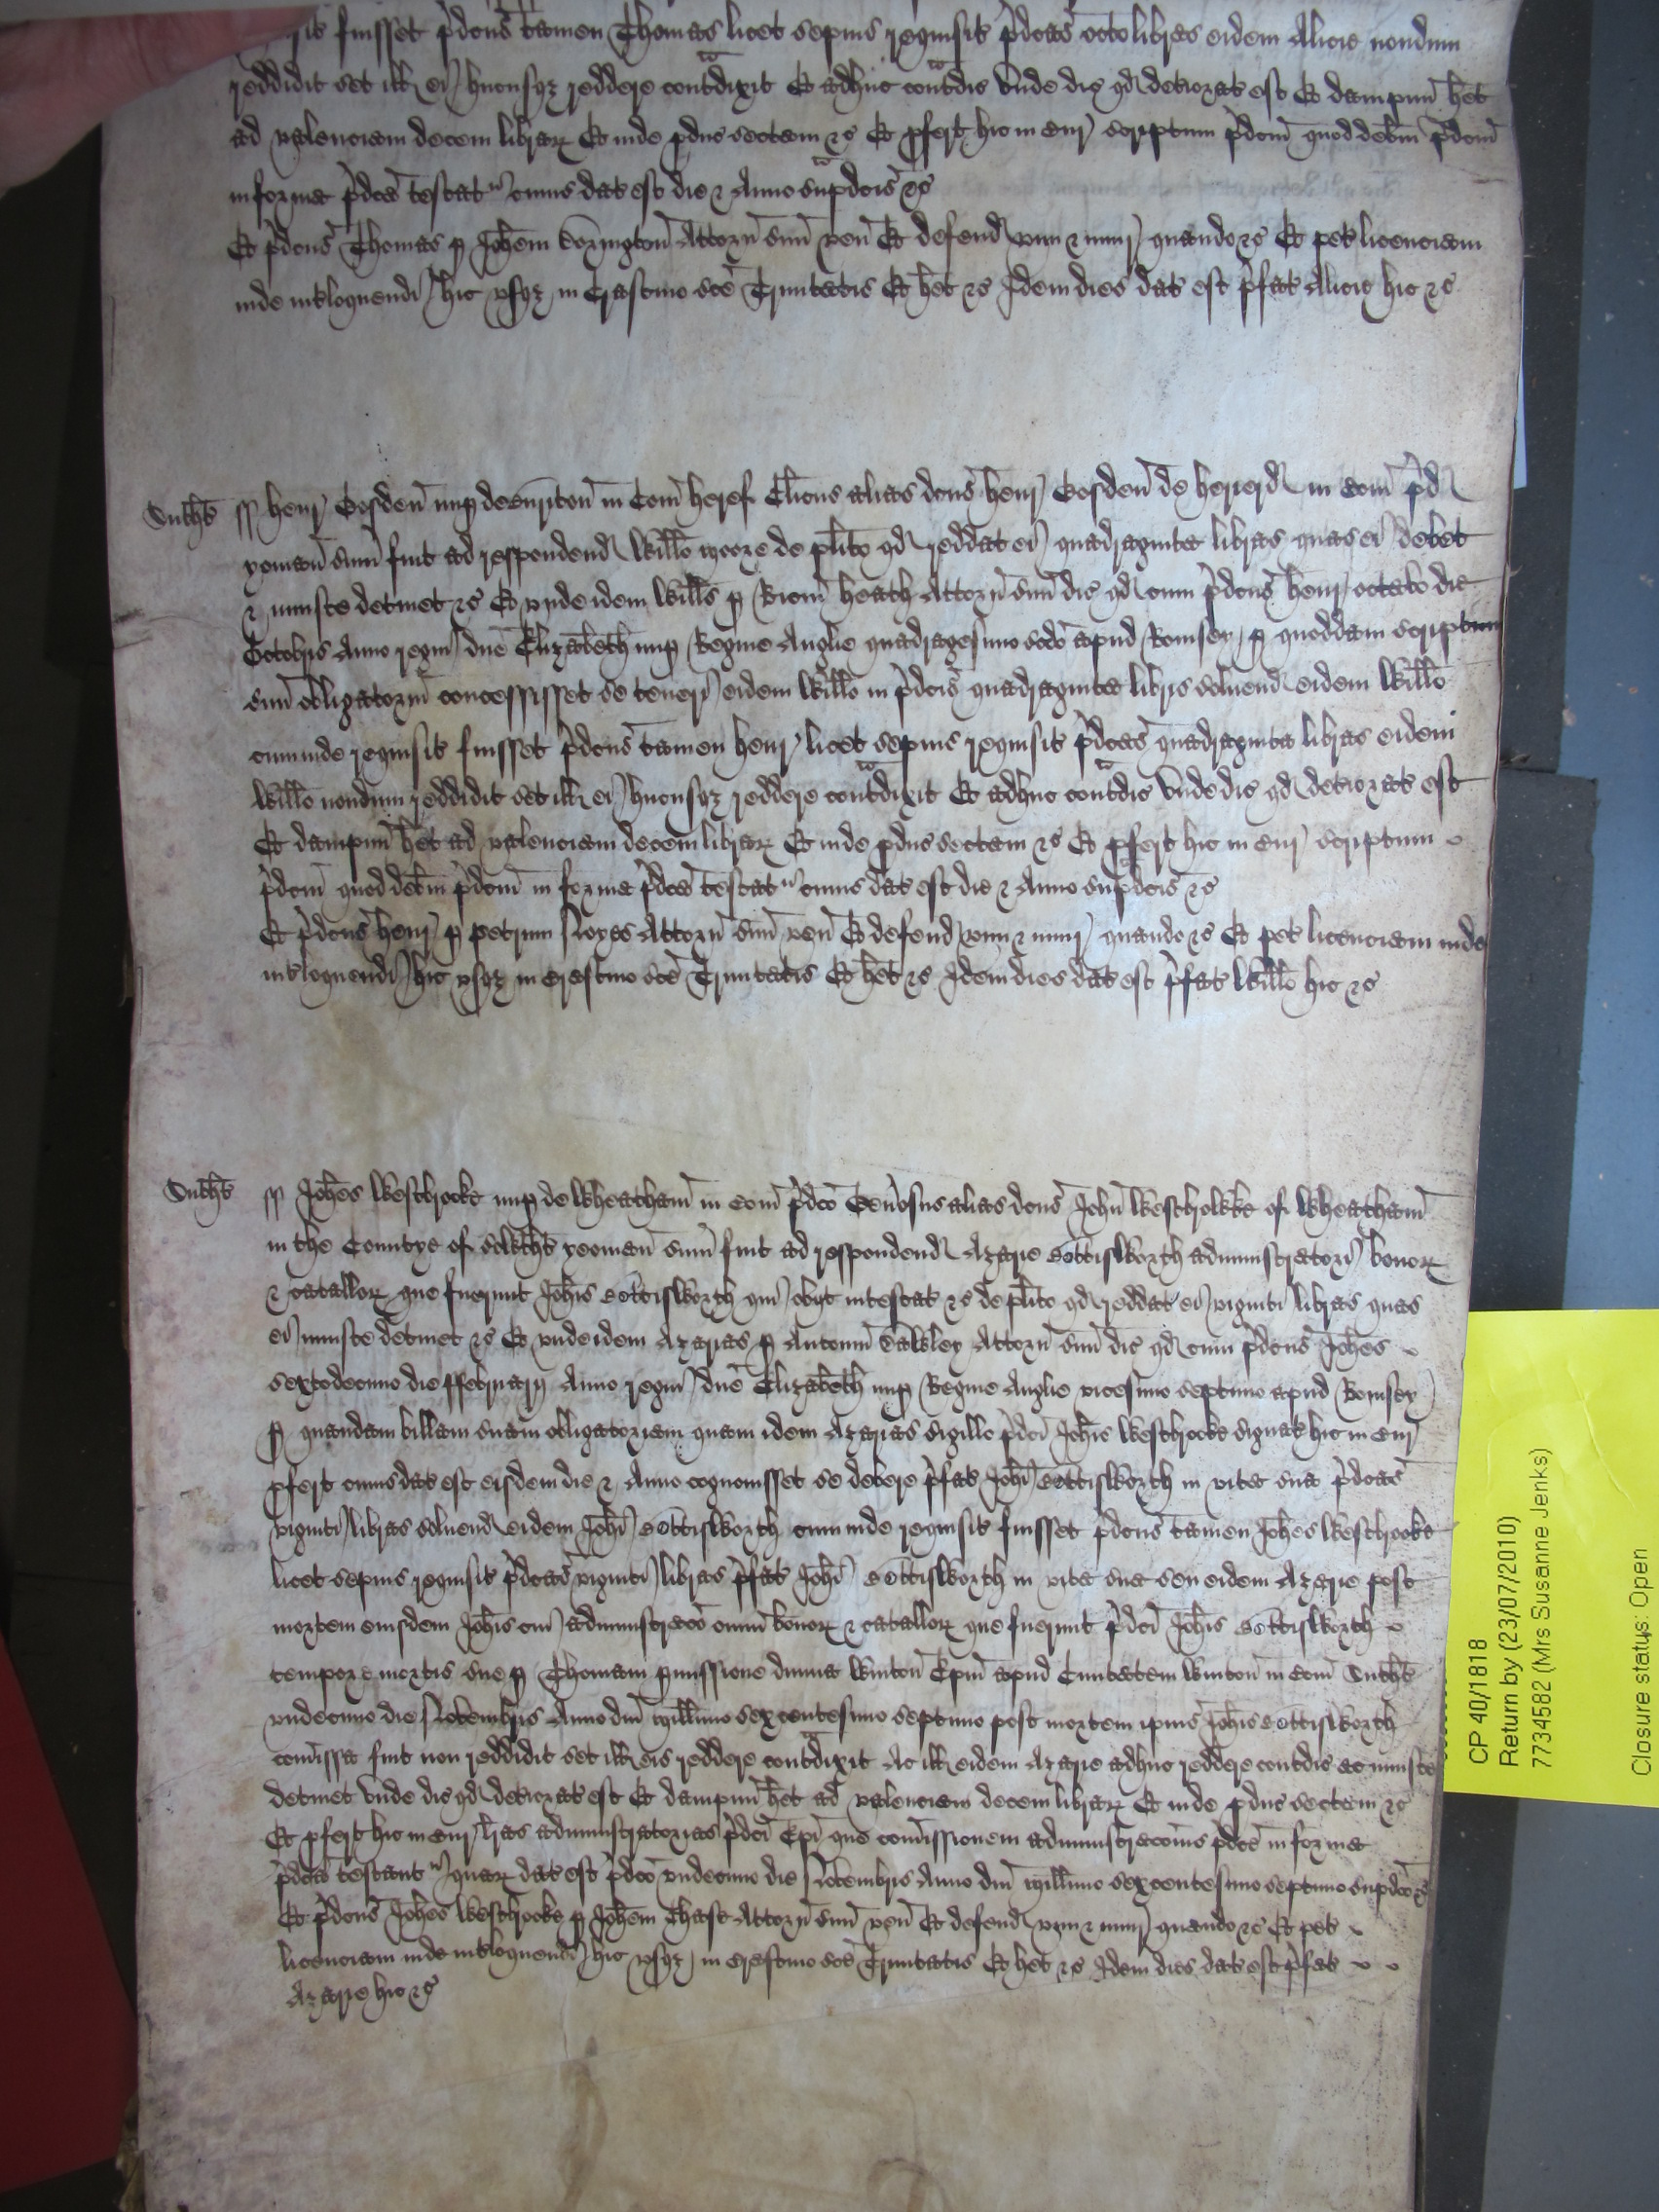 fuisset p̱dcūs tamen Thomas licet sepius requisit p̱dcas octo libras eidem Alicie nondum
reddidit set ill ei hucusq reddere contradixit Et adhuc contradic Unde dic qd deteriorat est Et dampnū het
ad valenciam decem librar Et inde pduc sectam &c Et pfert hic in Cur scriptum p̄dcm quod debm p̄dcm
in forma p̄dca testatr cuius dat est die & Anno supradcis &c
Et p̄dcūs Thomas p Johem Attorn suū ven Et defend vim & iniur quando &c Et pet licenciam
inde intloquendi hic usq in Crastino sce Trinitatis Et het &c Idem dies dat est p̄fat Alicie hic &c
Sutht ss Henr Cosden nup de in Com heref Clicus alias dcus henr Cosden de herierd in com p̄d
yoman sum fuit ad respondend Willo Moore de plito qd reddat ei quadraginta libras quas ei debet
& iniuste detinet &c Et unde idem Wills p Ricm heath Attorn suū dic qd cum p̄dcus henr octavo die
Octobris Anno regni dne Elizabeth nup Regine Anglie quadragesimo scdo apud Romsey p quoddam scriptum
suū obligatoriū concessisset se teneri eidem Willo in p̄dcis quadraginta libris solvend eidem Willo
cum inde requisit fuisset p̄dcus tamen henr licet sepius requisit p̄dcas quadraginta libras eidem
Willo nondum reddidit set ill ei hucusq reddere contradixit Et adhuc contradic Unde dic qd deteriorat est
Et dampnū het ad valenciam decem librar Et inde pduc sectam &c Et pfert hic in Cur scriptum
p̄dcm quod debm p̄dcm in forma p̄dca testatr cuius dat est die & Anno supradcis &c
Et p̄dcus henr p Petrum Noyes Attorn suū ven Et defend vim & iniur quando &c Et pet licenciam inde
intloquendi hic usq in Crastino sce Trinitatis Et het &c Idem dies dat est p̄fat Willo hic &c
Sutht ss Johes Westbrooke nup de Wheatham in com p̄dco Genosus alias dcus John Westbrowke of Wheatham
in the Countye of Sowtht yeoman sum fuit ad respondend Azarie Bettisworth administratori bonor
& catallor que fuerunt Johis Bettisworth qui obijt intestat &c de plito qd reddat ei viginti libras quas
ei iniuste detinet &c Et unde idem Azarias p Antoniū Attorn suū dic qd cum p̄dcus Johes
sextodecimo die ffebruarij Anno regni dne Elizabeth nup Regine Anglie vicesimo septimo apud Romsey
p quandam billam suam obligatoriam quam idem Azarias sigillo p̄dci Johis Westbrooke signat hic in Cur
pfert cuius dat est eisdem die & Anno cognovisset se debere p̄fat Johi Bettisworth in vita sua p̄dcas
viginti libras solvend eidem Johi Bettisworth cum inde requisit fuisset p̄dcus tamen Johes Westbrooke
licet sepius requisit p̄dcas viginti libras p̄fat Johi Bettisworth in vita sua seu eidem Azarie post
mortem eiusdem Johis cui administraco omniū bonor & catallor que fuerunt p̄dci Johis Bettisworth
tempore mortis sue p Thomam pmissione divina Winton Epm apud Civitatem Winton in com Sutht
undecimo die Novembris Anno dni millimo sexcentesimo septimo post mortem ipius Johis Bettisworth
comissa fuit non reddidit set ill eis reddere contradixit Ac ill eidem Azarie adhuc reddere contradic ac iniuste
detinet Unde dic qd deteriorat est Et dampnū het ad valenciam decem librar Et inde pduc sectam &c
Et pfert hic in Cur lras administratorias p̄dci Epi que comissionem administracois p̄dce in forma
p̄dca testantr quar dat est p̄dco undecimo die Novembris Anno dni millimo sexcentesimo septimo supradco &c
Et p̄dcus Johes Westbrooke p Johem Chase Attorn suū ven Et defend vim & iniur quando &c Et pet
licenciam inde intloquendi hic usq in crastino sce Trinitatis Et het &c Idem dies dat est p̄fat
Azarie hic &c
CP 40/1818
Return by (23/07/2010)
7734582 (Mrs Susanne Jenks)
Closure status: Open